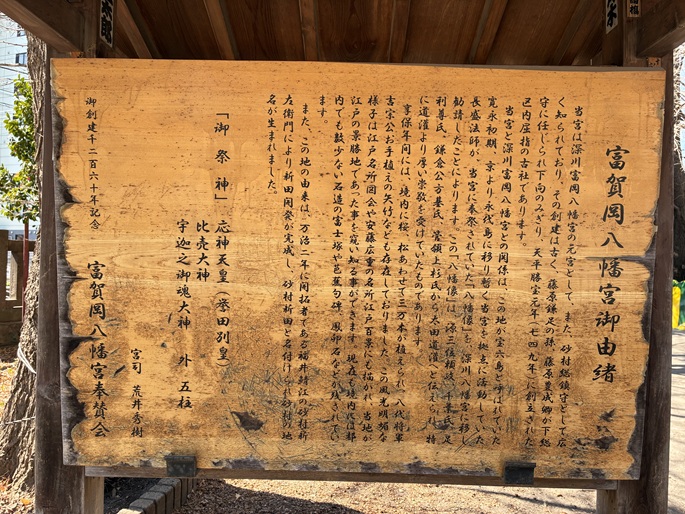 富賀岡八幡宮御由緒
当宮は深川富岡八幡宮の元宮として、また、砂村総鎮守として広
く知られており、その創建は古く、藤原鎌足の孫・藤原豊成卿が下総
守に任じられ下向のみぎり、天平勝宝元年(七四九年)に創立された
区内屈指の古社であります。
当宮と深川富岡八幡宮との関係は、この地が宝六島と呼ばれていた
寛永初期、京より永代島に移り暫く当宮を拠点に活動していた
長盛法師が、当宮に奉祭されていた「八幡像」を、深川八幡宮に移し
勧請したことによります。この「八幡像」は、源三位頼政、千葉氏、足
利尊氏、鎌倉公方基氏、管領上杉氏から太田道灌へと伝えられ、特
に道灌より厚い崇敬を受けていたものであります。
享保年間には、境内に桜、松あわせて三万本が植えられ、八代将軍
吉宗公お手植えの矢竹なども存在しておりました。この風光明媚な
様子は江戸名所図会や安藤広重の名所江戸百景にも描かれ、当地が
江戸の景勝地であった事を窺い知る事ができます。現在も境内には都
内でも数少ない石造の富士塚や芭蕉句碑、鳳卯石などが残されてい
ます。
また、この地の由来は、万治二年に開拓者である福井鯖江の砂村新
左衛門により新田開発が完成し、砂村新田と名付けられ砂村の地
名が生まれました。
「御祭神」 応神天皇(誉田別皇)
比売大神
宇迦之御魂大神 外 五柱
宮司 荒井秀樹
富賀岡八幡宮奉賛会
御創建千二百六十年記念